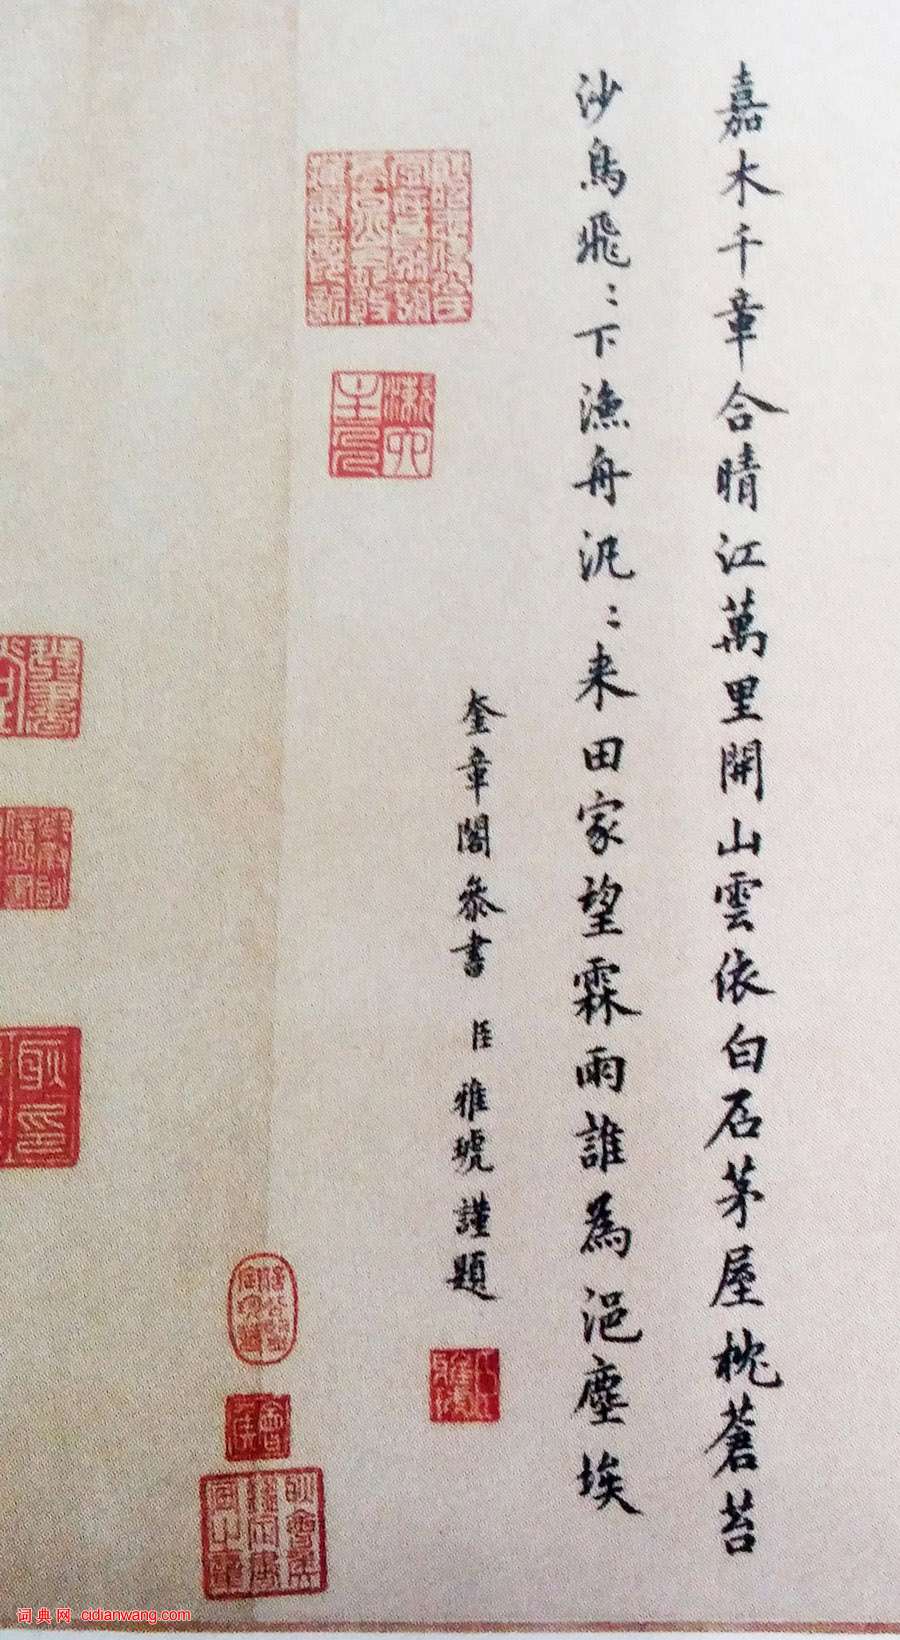 嘉木千章合晴江萬里開山雲依白石茅屋枕蒼苔
沙鳥飛〻下漁舟汎〻来田家望霖雨誰為浥塵埃
奎章閣叅書臣雅琥謹題
词典网 cidianwang.com